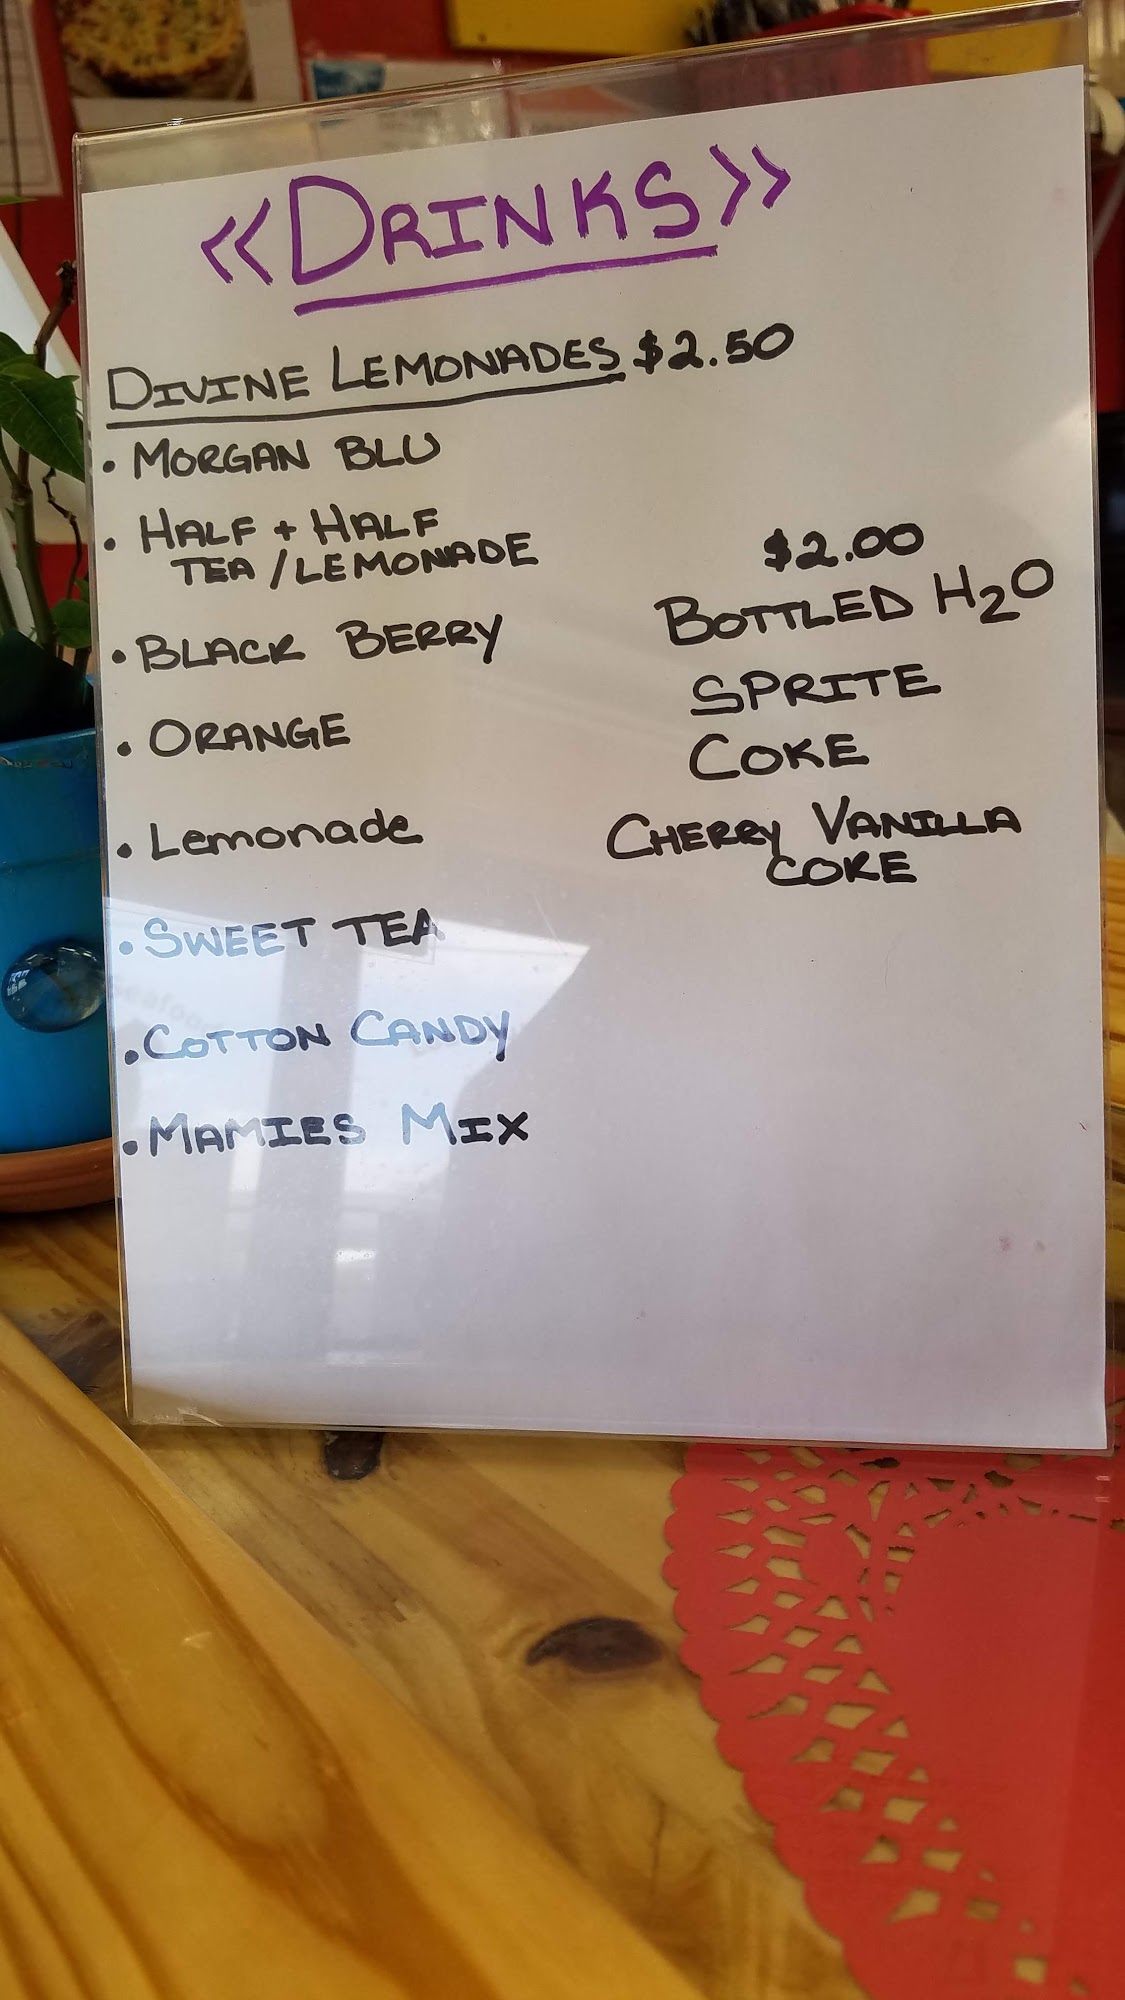 <<DRINKS>>
DIVINE LEMONADES $2.50
• MORGAN BLU
• HALF + HALF
TEA/LEMONADE
• BLACK BERRY
• ORANGE
• Lemonade
• SWEET TEA
• COTTON CANDY
• MAMIES MIX
$2.00
BOTTLED H2O
SPRITE
COKE
CHERRY VANILLA
COKE